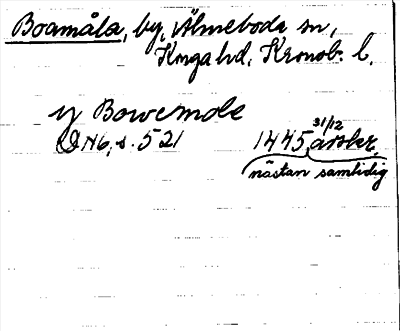 Boamåla, by, Älmeboda sn,
Konga hd, Kronob. l.
y Bowemole
DN6, s. 521 1445 31/12 avskr.
nästan samtidig